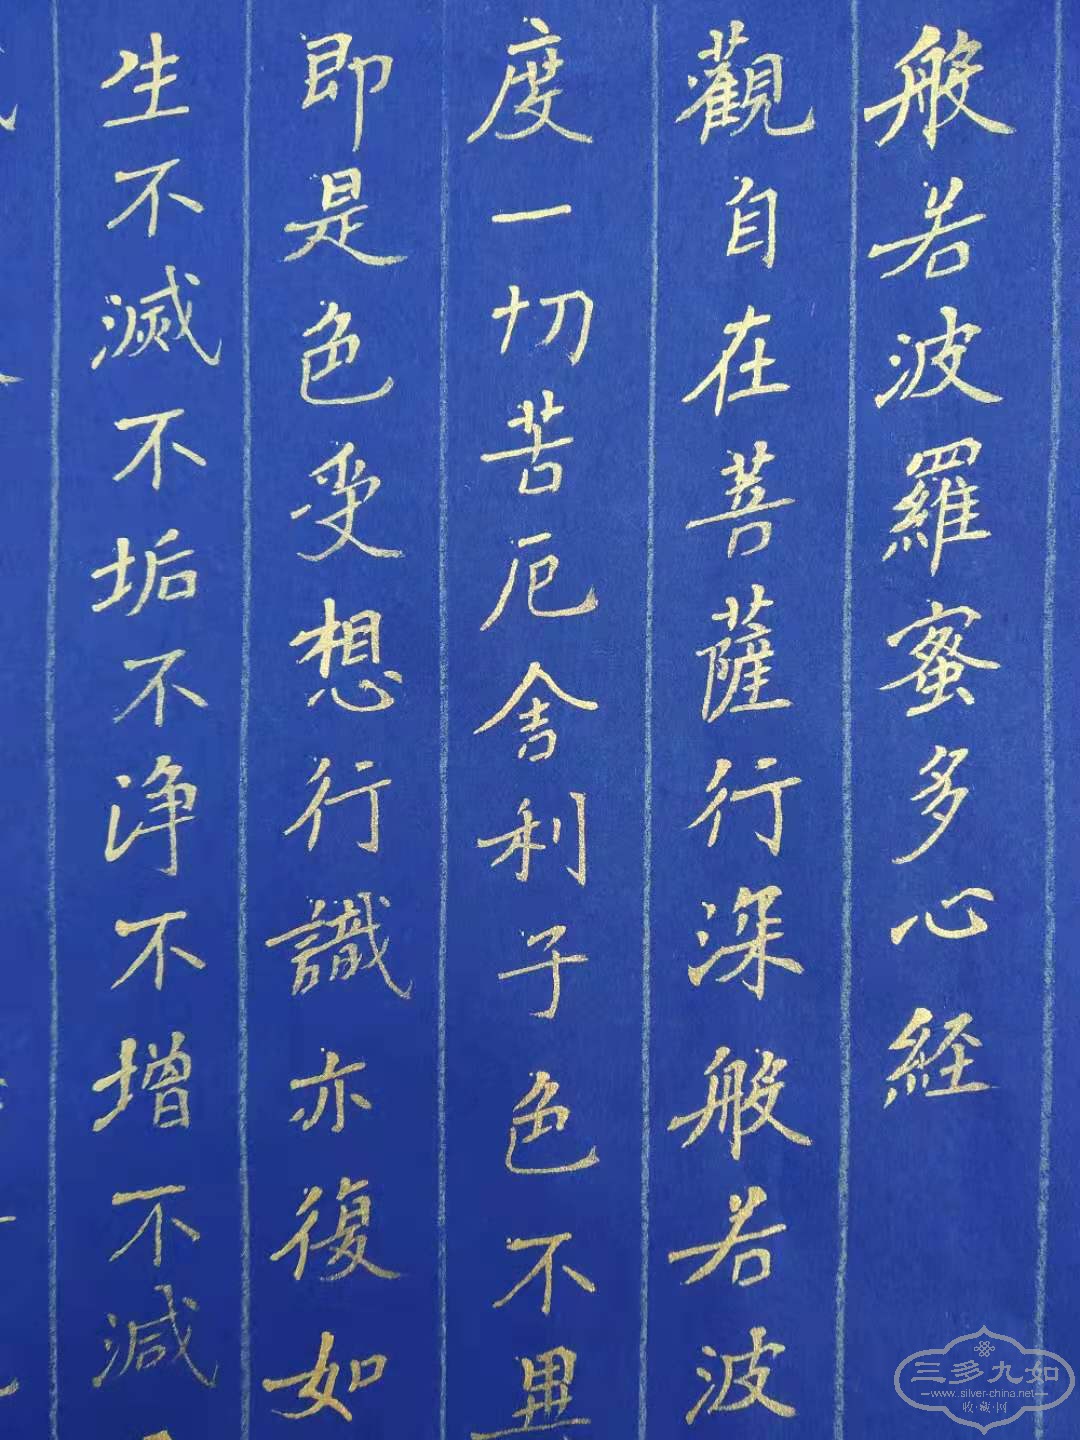 般若波羅蜜多心経
觀自在菩薩行深般若波
度一切苦厄舍利子色不異
即是色受想行識亦復如
生不滅不垢不浄不增不減
三多九如
www.silver-china.net
收·藏·网